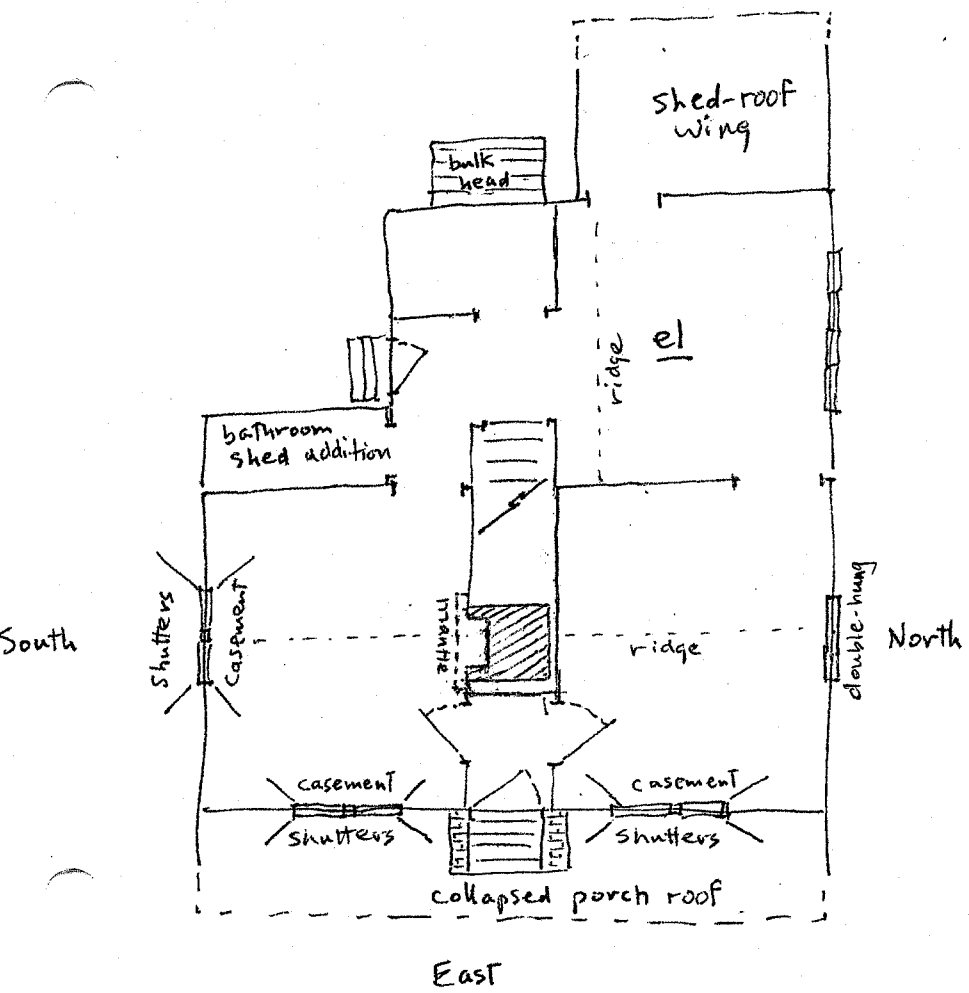 shed-roof
wing
bulk
head
ridge
el
bathroom
shed addition
South
shutters
casement
mantle
ridge
double-hung
North
casement
shutters
casement
shutters
collapsed porch roof
East